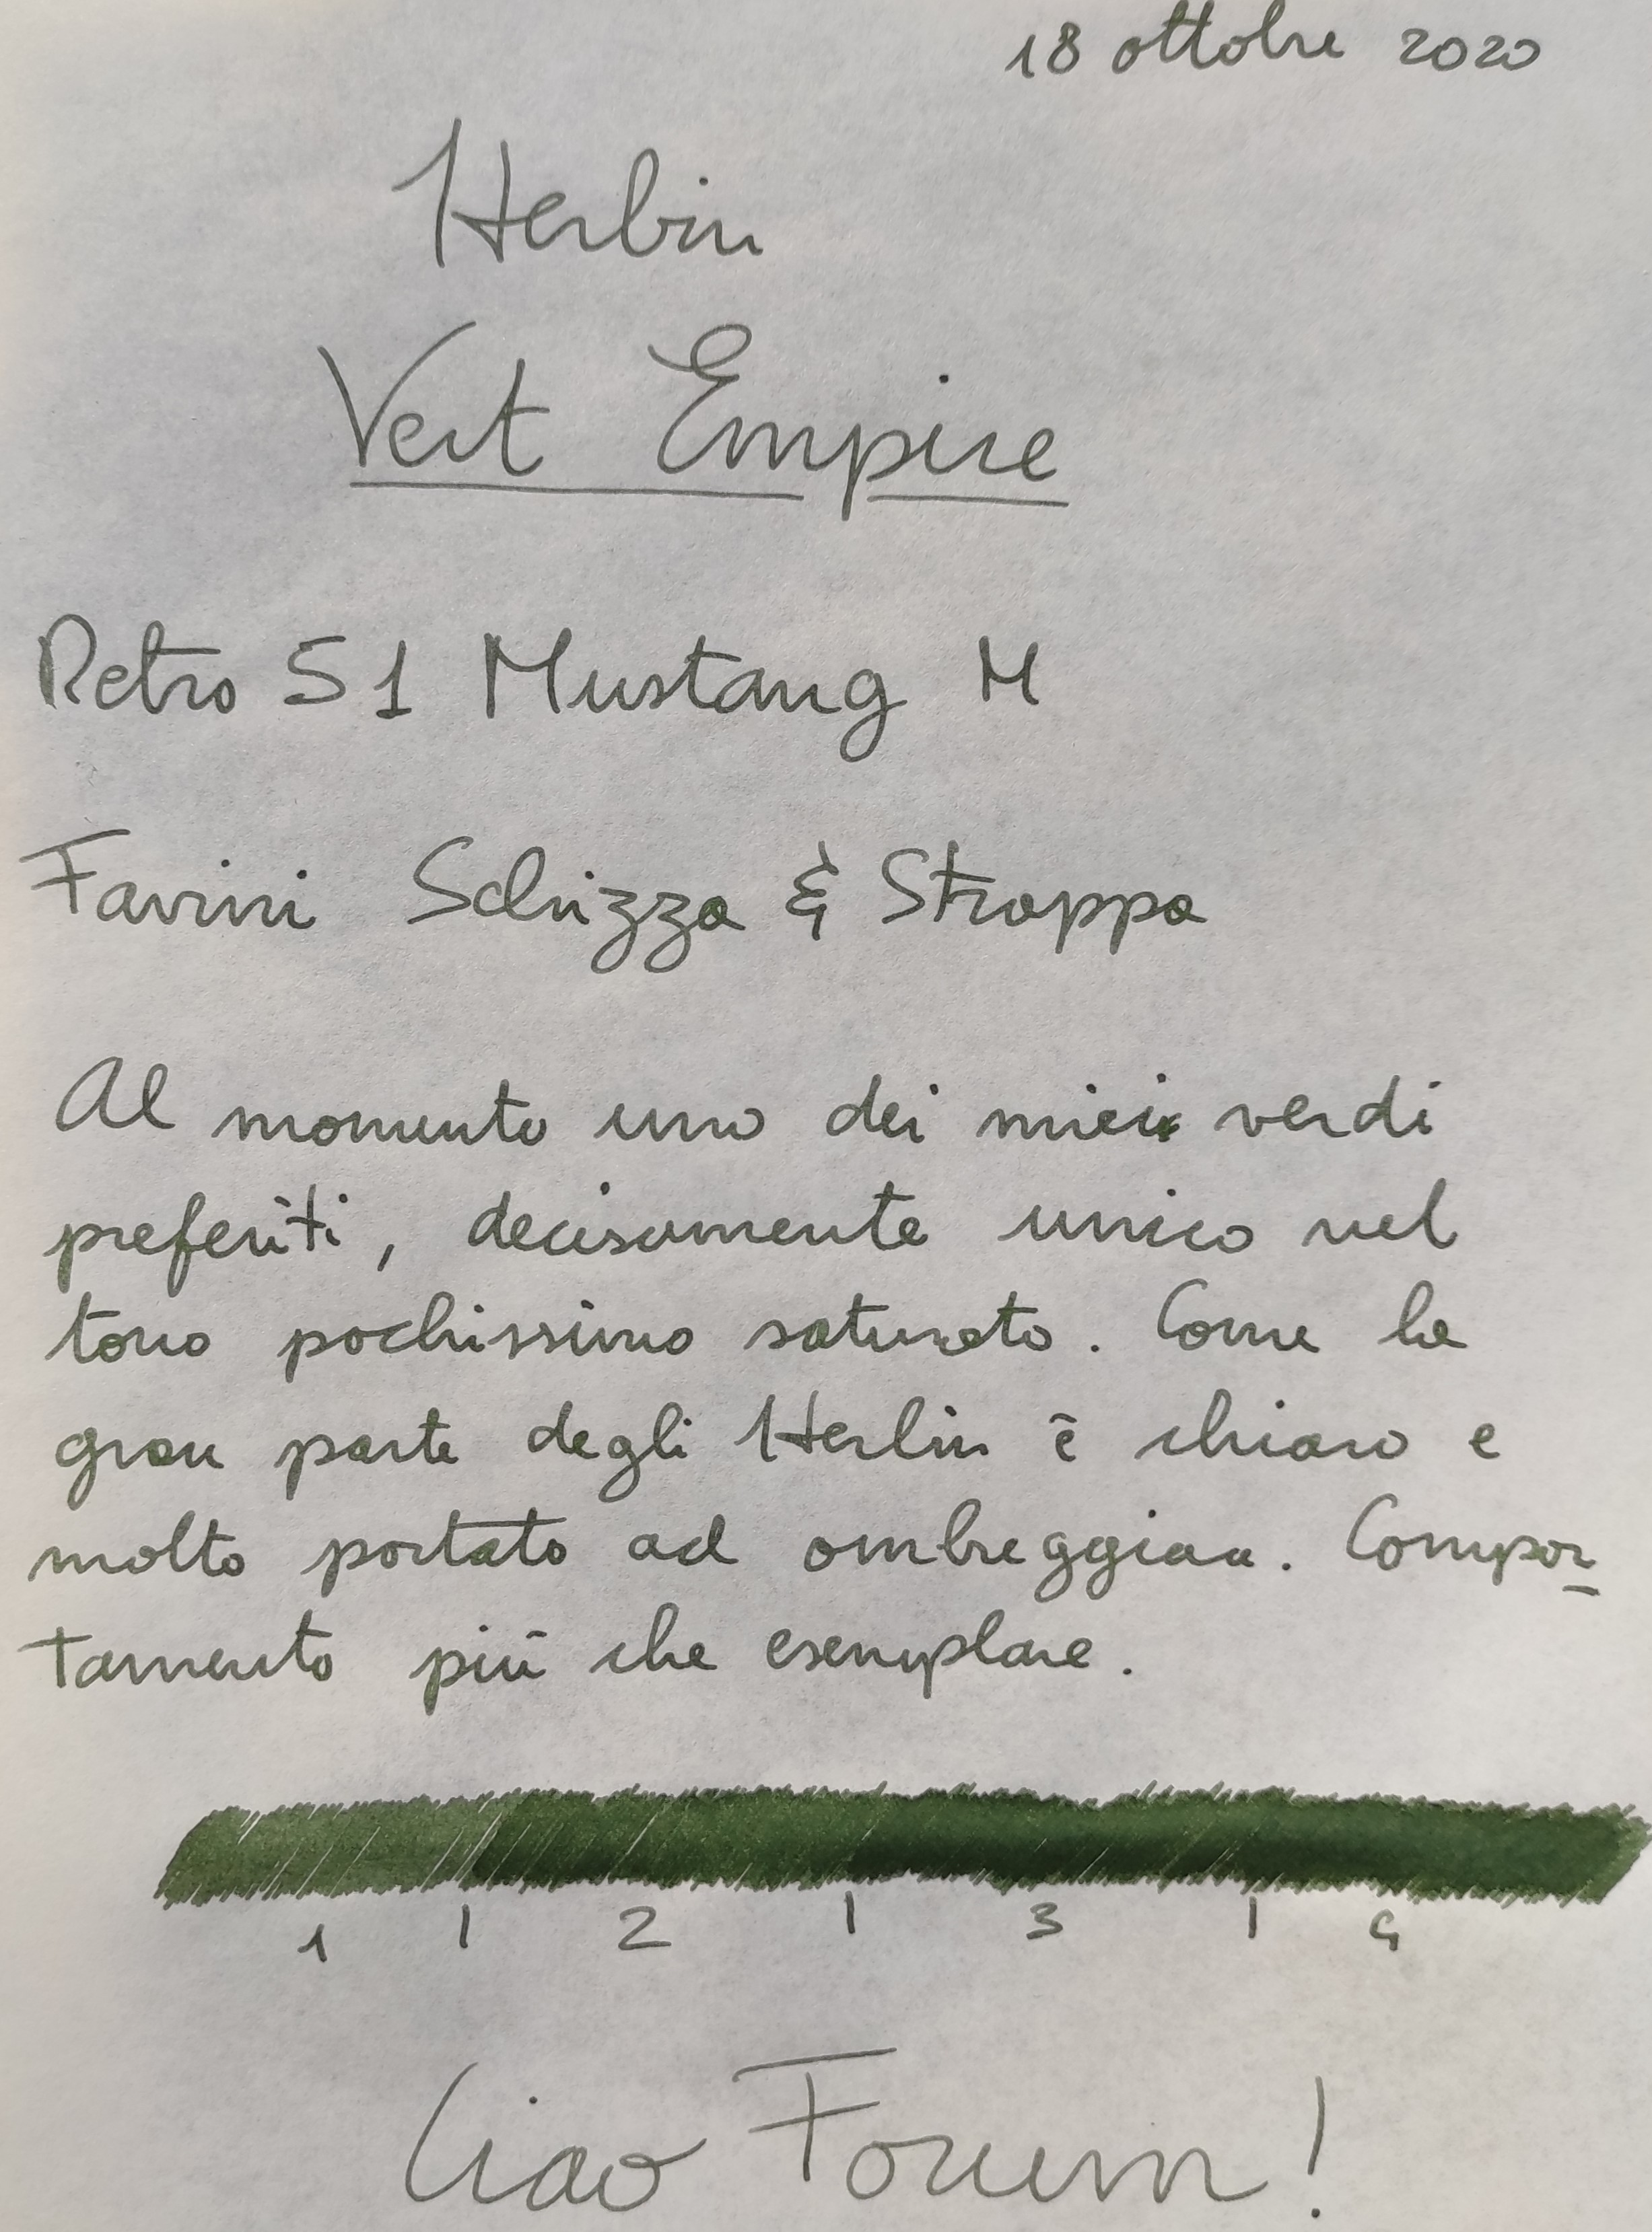 18 ottobre 2020
Herbin
Vert Empire
Retro 51 Mustang M
Favini Schizza & Strappa
Al momento uno dei miei verdi
preferiti, decisamente unico nel
tono pochissimo saturato. Come la
gran parte degli Herbin è chiaro e
molto portato ad ombreggiare. Compor-
tamento più che esemplare.
1 | 2 | 3 | 4
Ciao Forum!